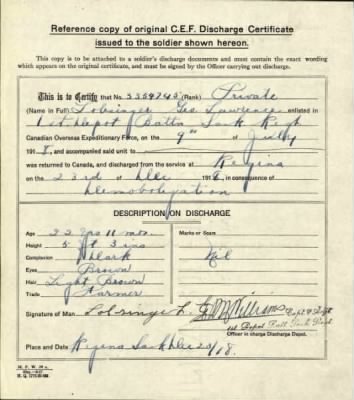 Reference copy of original C.E.F. Discharge Certificate
issued to the soldier shown hereon.
This copy is to be attached to a soldier's discharge documents and must contain the exact wording
which appears on the original certificate, and must be signed by the Officer carrying out discharge.
This is to Certify that No. (Rank) Private
(Name in Full) Lobsinger Geo Lawrence enlisted in
1st Depot Battn Sask Regt
Canadian Overseas Expeditionary Force, on the 9th of July
1918, and accompanied said unit to
was returned to Canada, and discharged from the service at Regina
on the 23rd of Dec 1918, in consequence of
Demobolization
DESCRIPTION ON DISCHARGE
Age 22 yrs 11 mos.
Height 5 ft 3 ins
Complexion Dark
Eyes Brown
Hair Light Brown
Trade Farmer
Marks or Scars
Nil
Signature of Man Lobsinger L. McWilliams Capt.
1st Depot Batt Sask Regt.
Officer in charge Discharge Depot.
Place and Date Regina Sask Dec 20/18.
M. F. W. 39